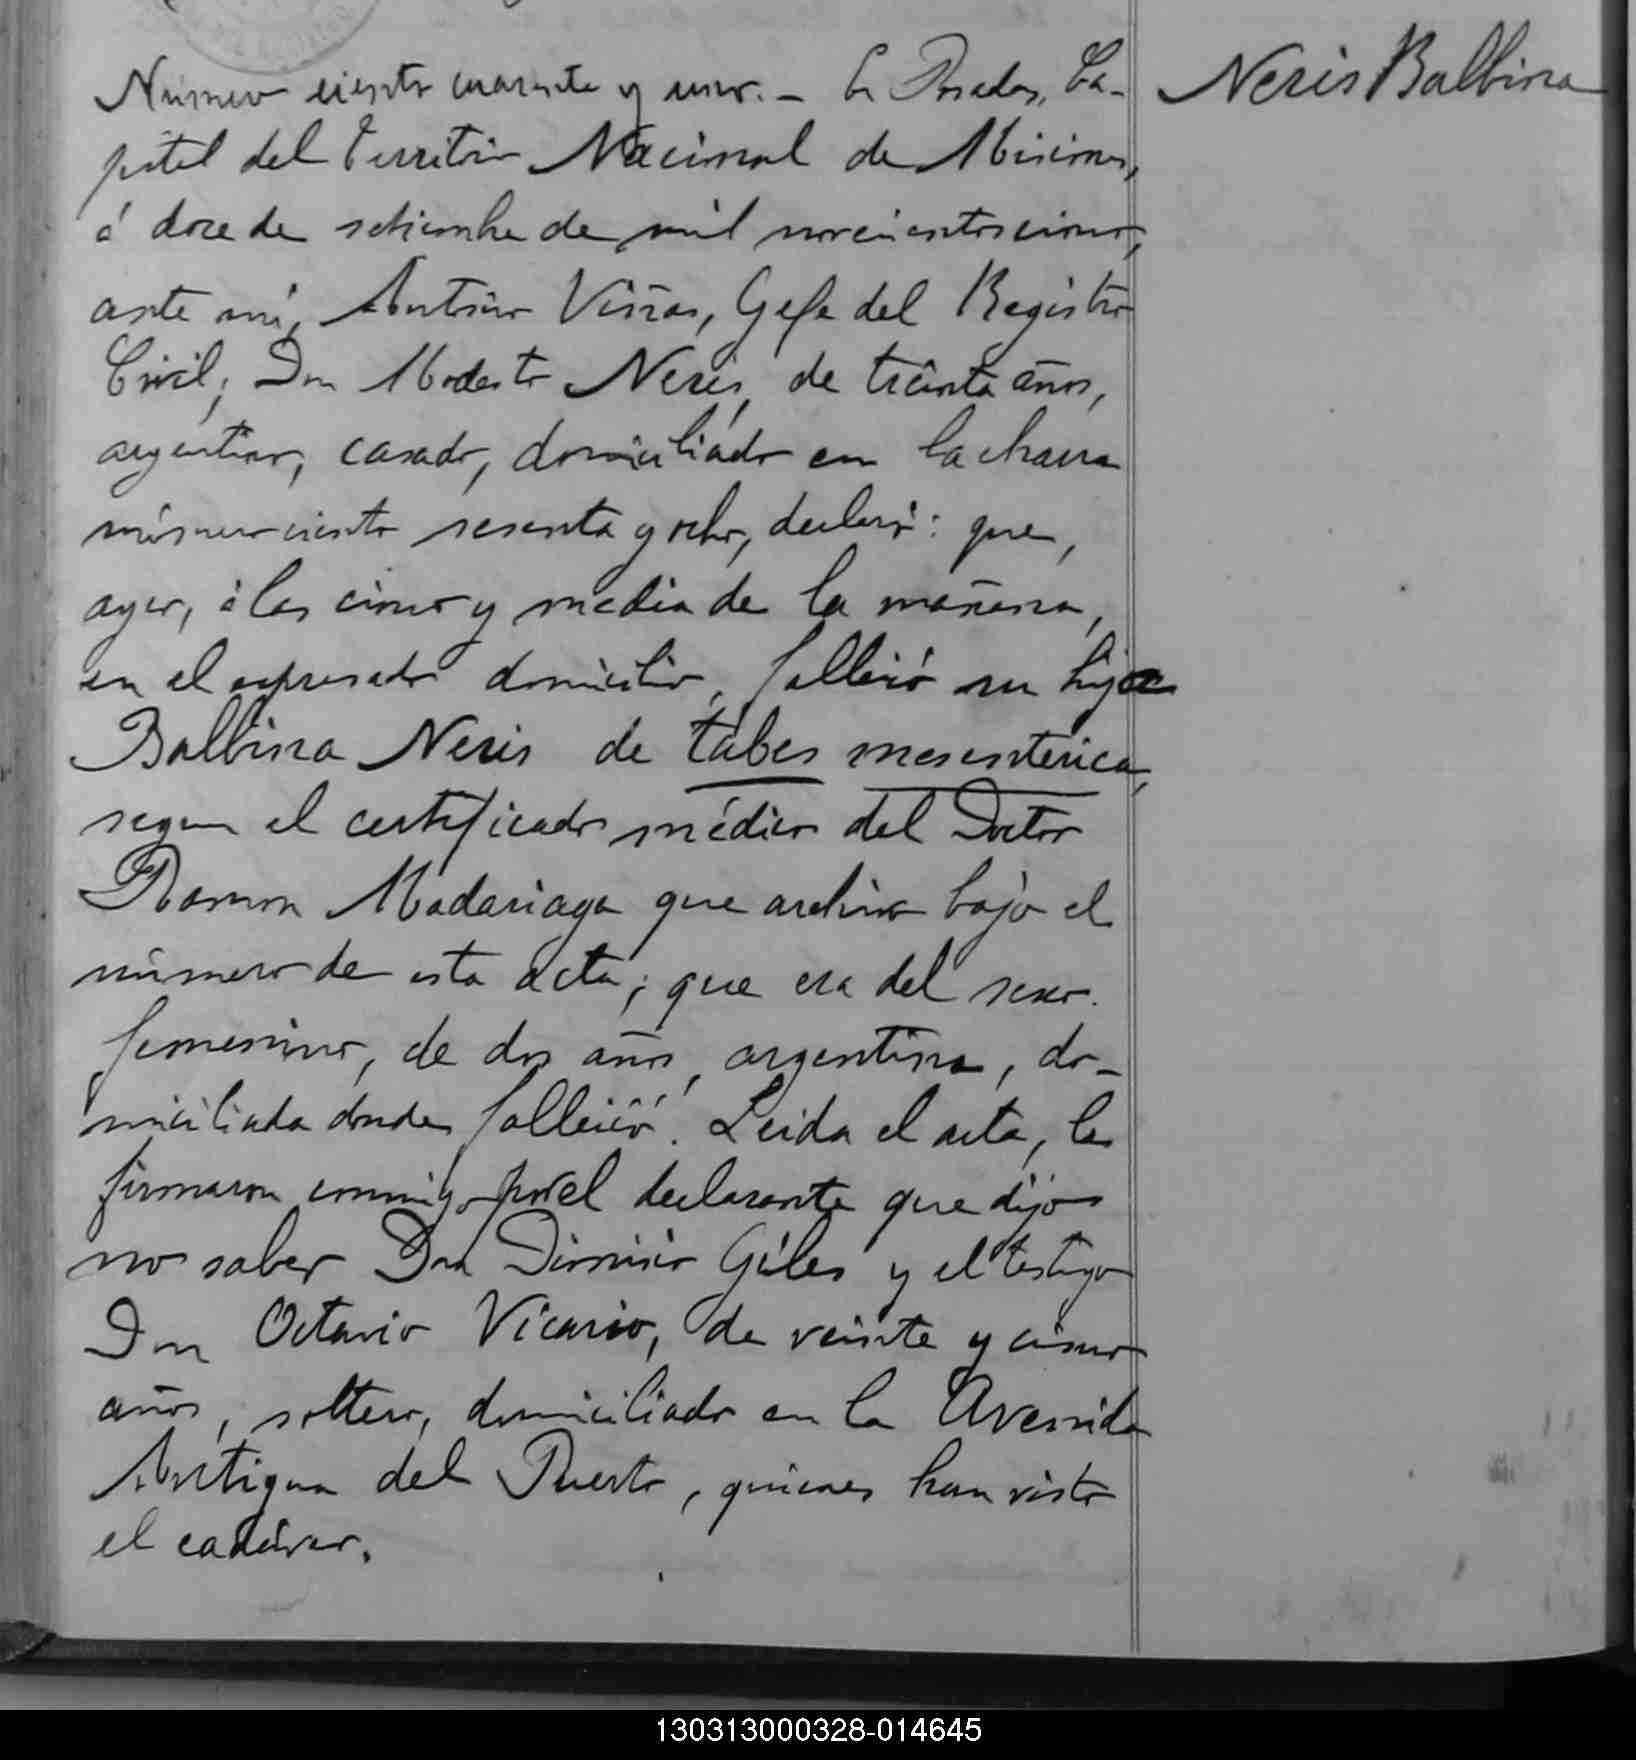 Número ciento cuarenta y uno.- En Posadas, Ca-
pital del Territorio Nacional de Misiones,
á doce de setiembre de mil novecientos cinco,
ante mí, Antonio Viñas, Gefe del Registro
Civil; Don Modesto Neris, de treinta años,
argentino, casado, domiciliado en la chacra
número ciento sesenta y ocho, declaró: que,
ayer, á las cinco y media de la mañana,
en el expresado domicilio, falleció su hija
Balbina Neris de tabes mesenterica,
segun el certificado médico del Doctor
Ramon Madariaga que archivo bajo el
número de esta acta; que era del sexo
femenino, de dos años, argentina, do-
miciliada donde falleció. Leida el acta, la
firmaron conmigo por el declarante que dijo
no saber Don Dionisio Giles y el testigo
Don Octavio Vicario, de veinte y cinco
años, soltero, domiciliado en la Avenida
Antigua del Puerto, quienes han visto
el cadáver.
Neris Balbina
130313000328-014645